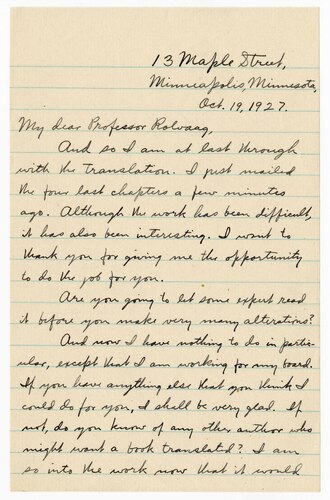 13 Maple Street,
Minneapolis, Minnesota,
Oct. 19, 1927.
My dear Professor Rolvaag,
And so I am at last through
with the translation. I just mailed
the four last chapters a few minutes
ago. Although the work has been difficult,
it has also been interesting. I want to
thank you for giving me the opportunity
to do the job for you.
Are you going to let some expert read
it before you make very many alterations?
And now I have nothing to do in partic-
ular, except that I am working for my board.
If you have anything else that you think I
could do for you, I shall be very glad. If
not, do you know of any other author who
might want a book translated? I am
so into the work now that it would